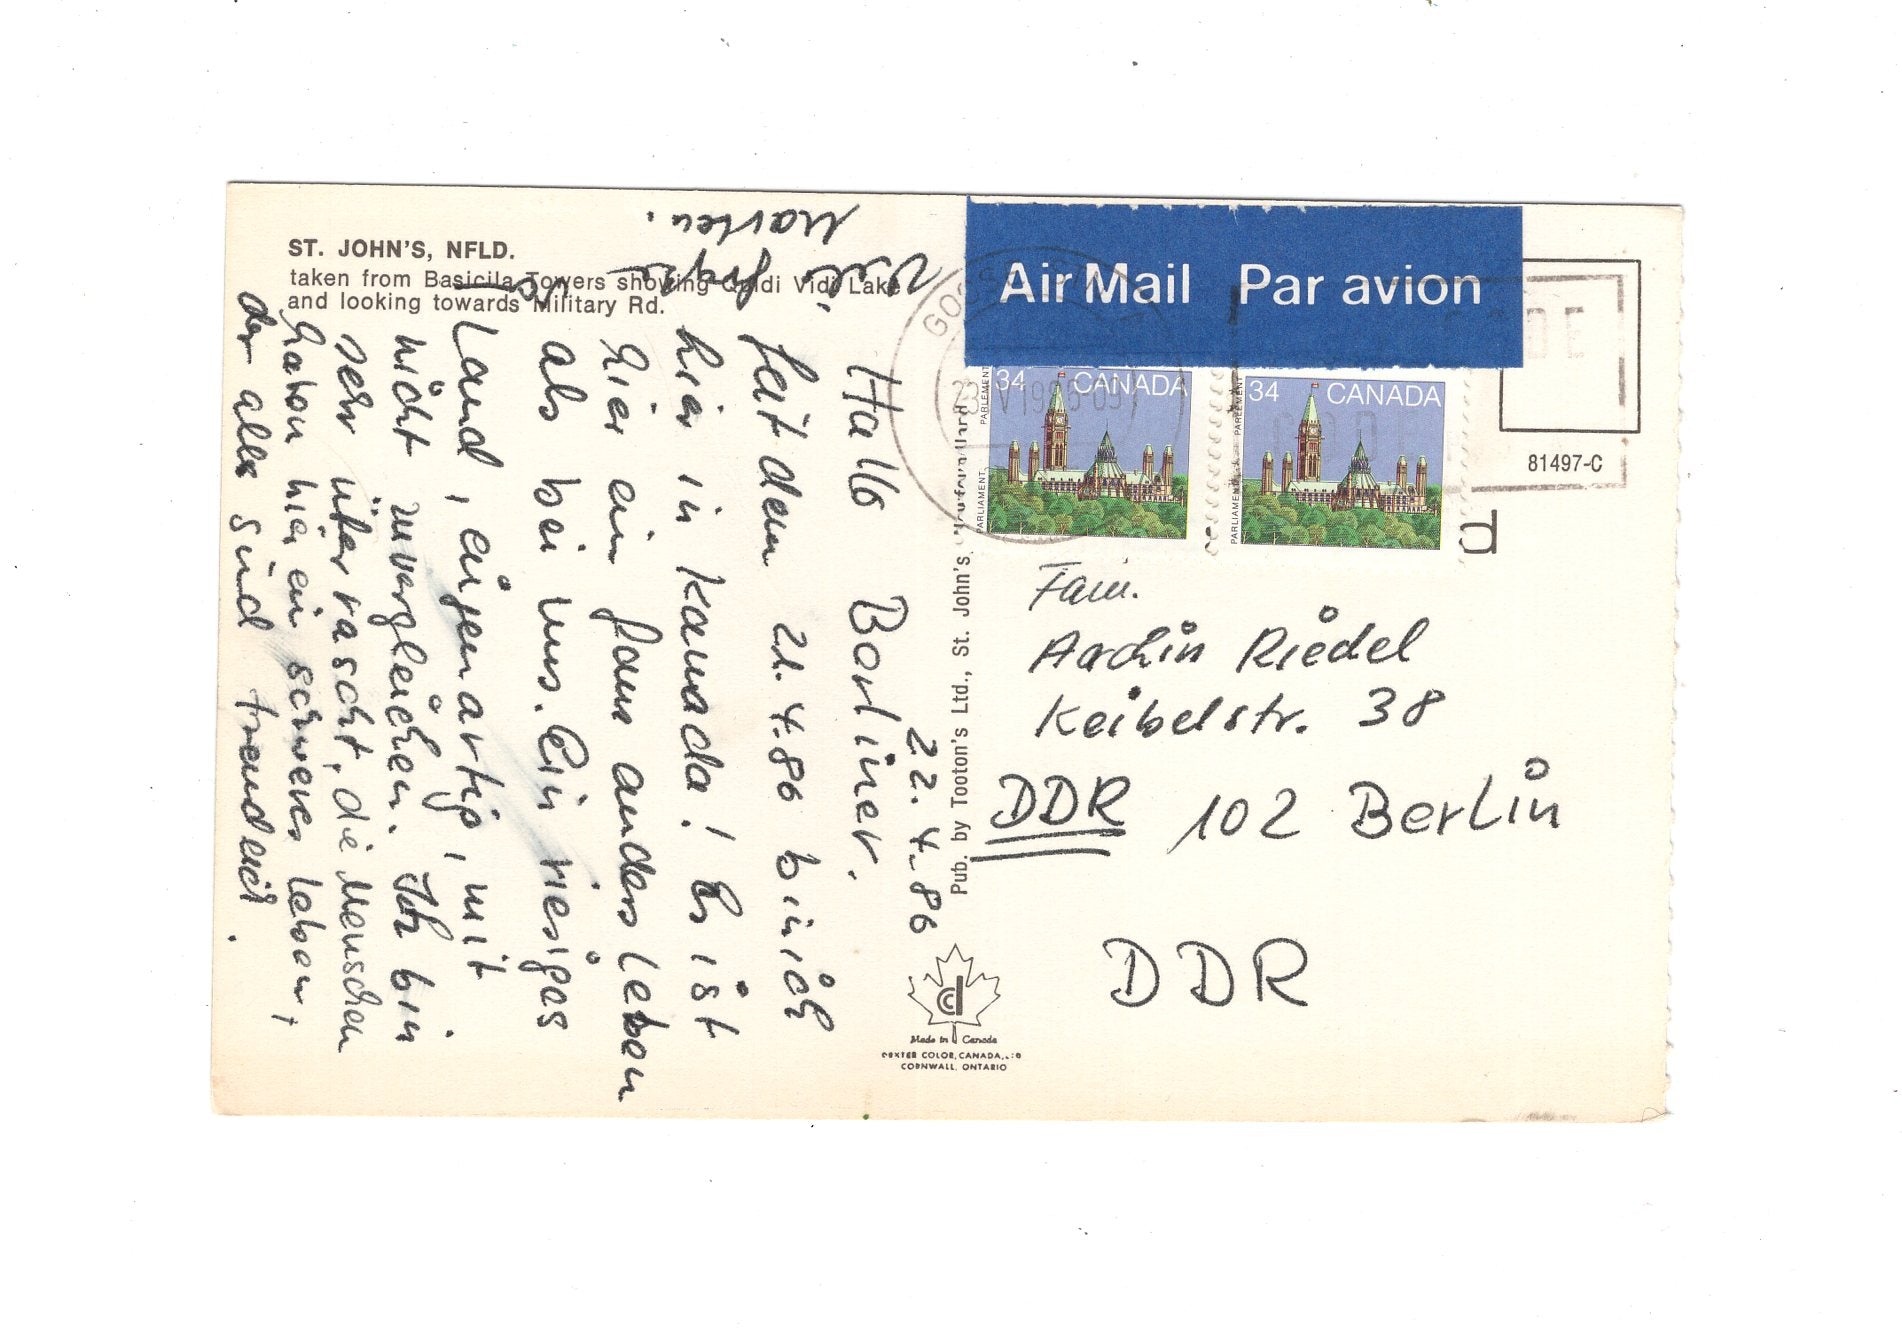 ST. JOHN'S, NFLD.
taken from Basicila Towers showing Quidi Vidi Lake
and looking towards Military Rd.
22.4.86
Hallo Berliner.
Seit dem 21.4.86 bin ich
hier in Kanada! Es ist
hier ein ganz anders leben
als bei uns. Ein riesiges
Land, eigenartig, mit
nicht zuvergleichen. Ich bin
sehr überrascht, die Menschen
haben hier ein schweres leben,
der alle sind freundlich.
Viele Grüße
Pub. by Tooton's Ltd., St. John's, Newfoundland
Made in Canada
DEXTER COLOR, CANADA, LTD
CORNWALL, ONTARIO
Air Mail Par avion
GOOSE
1986-09
34 CANADA
PARLIAMENT
PARLEMENT
34 CANADA
PARLIAMENT
PARLEMENT
CODE
81497-C
d
Fam.
Aachin Riedel
Keibelstr. 38
DDR 102 Berlin
DDR